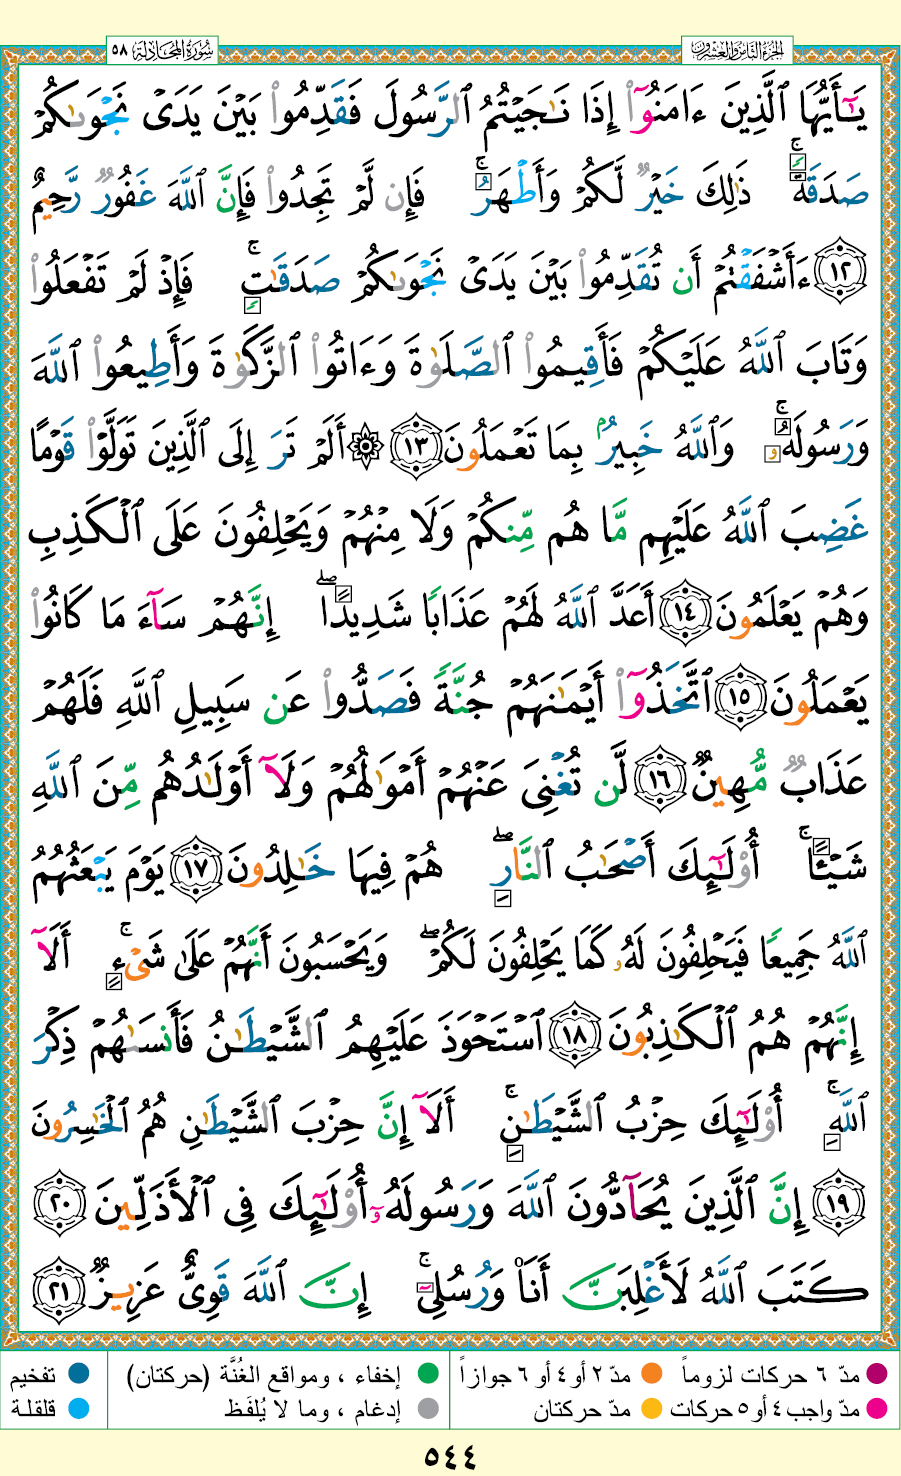 الجزء الثامن والعشرون
سورة المجادلة ٥٨
يَٰٓأَيُّهَا ٱلَّذِينَ ءَامَنُوٓا۟ إِذَا نَٰجَيْتُمُ ٱلرَّسُولَ فَقَدِّمُوا۟ بَيْنَ يَدَىْ نَجْوَىٰكُمْ
صَدَقَةً ۚ ذَٰلِكَ خَيْرٌ لَّكُمْ وَأَطْهَرُ ۚ فَإِن لَّمْ تَجِدُوا۟ فَإِنَّ ٱللَّهَ غَفُورٌ رَّحِيمٌ
١٢ ءَأَشْفَقْتُمْ أَن تُقَدِّمُوا۟ بَيْنَ يَدَىْ نَجْوَىٰكُمْ صَدَقَٰتٍ ۚ فَإِذْ لَمْ تَفْعَلُوا۟
وَتَابَ ٱللَّهُ عَلَيْكُمْ فَأَقِيمُوا۟ ٱلصَّلَوٰةَ وَءَاتُوا۟ ٱلزَّكَوٰةَ وَأَطِيعُوا۟ ٱللَّهَ
وَرَسُولَهُۥ ۚ وَٱللَّهُ خَبِيرٌۢ بِمَا تَعْمَلُونَ ١٣ ۞ أَلَمْ تَرَ إِلَى ٱلَّذِينَ تَوَلَّوْا۟ قَوْمًا
غَضِبَ ٱللَّهُ عَلَيْهِم مَّا هُم مِّنكُمْ وَلَا مِنْهُمْ وَيَحْلِفُونَ عَلَى ٱلْكَذِبِ
وَهُمْ يَعْلَمُونَ ١٤ أَعَدَّ ٱللَّهُ لَهُمْ عَذَابًا شَدِيدًا ۖ إِنَّهُمْ سَآءَ مَا كَانُوا۟
يَعْمَلُونَ ١٥ ٱتَّخَذُوٓا۟ أَيْمَٰنَهُمْ جُنَّةً فَصَدُّوا۟ عَن سَبِيلِ ٱللَّهِ فَلَهُمْ
عَذَابٌ مُّهِينٌ ١٦ لَّن تُغْنِىَ عَنْهُمْ أَمْوَٰلُهُمْ وَلَآ أَوْلَٰدُهُم مِّنَ ٱللَّهِ
شَيْـًٔا ۚ أُو۟لَٰٓئِكَ أَصْحَٰبُ ٱلنَّارِ ۖ هُمْ فِيهَا خَٰلِدُونَ ١٧ يَوْمَ يَبْعَثُهُمُ
ٱللَّهُ جَمِيعًا فَيَحْلِفُونَ لَهُۥ كَمَا يَحْلِفُونَ لَكُمْ ۖ وَيَحْسَبُونَ أَنَّهُمْ عَلَىٰ شَىْءٍ ۚ أَلَآ
إِنَّهُمْ هُمُ ٱلْكَٰذِبُونَ ١٨ ٱسْتَحْوَذَ عَلَيْهِمُ ٱلشَّيْطَٰنُ فَأَنسَىٰهُمْ ذِكْرَ
ٱللَّهِ ۚ أُو۟لَٰٓئِكَ حِزْبُ ٱلشَّيْطَٰنِ ۚ أَلَآ إِنَّ حِزْبَ ٱلشَّيْطَٰنِ هُمُ ٱلْخَٰسِرُونَ
١٩ إِنَّ ٱلَّذِينَ يُحَآدُّونَ ٱللَّهَ وَرَسُولَهُۥٓ أُو۟لَٰٓئِكَ فِى ٱلْأَذَلِّينَ ٢٠
كَتَبَ ٱللَّهُ لَأَغْلِبَنَّ أَنَا۠ وَرُسُلِىٓ ۚ إِنَّ ٱللَّهَ قَوِىٌّ عَزِيزٌ ٢١
مدّ ٦ حركات لزوماً مدّ ٢ أو ٤ أو ٦ جوازاً إخفاء ، ومواقع الغُنَّة (حركتان) تفخيم
مدّ واجب ٤ أو ٥ حركات مدّ حركتان إدغام ، وما لا يُلفَظ قلقلة
٥٤٤